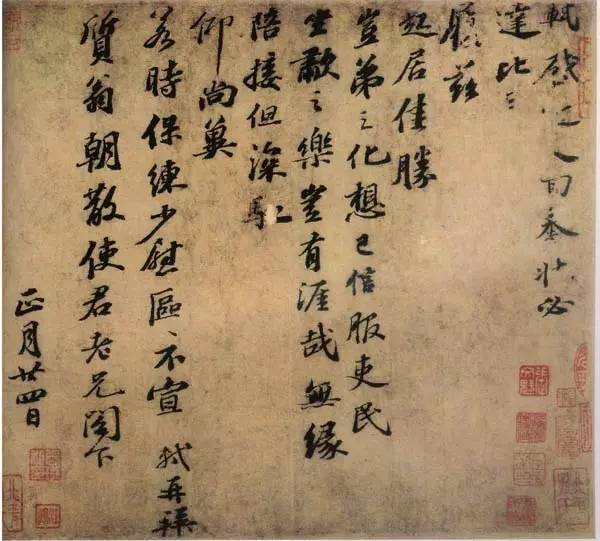 軾啓近人回奉狀必
達比日
履茲
起居佳勝
豈弟之化想已信服吏民
坐歗之樂豈有涯哉無緣
陪接但深馳
仰尚冀
若時保練少慰區〻不宣 軾再拜
質翁朝散使君老兄閣下
正月廿四日